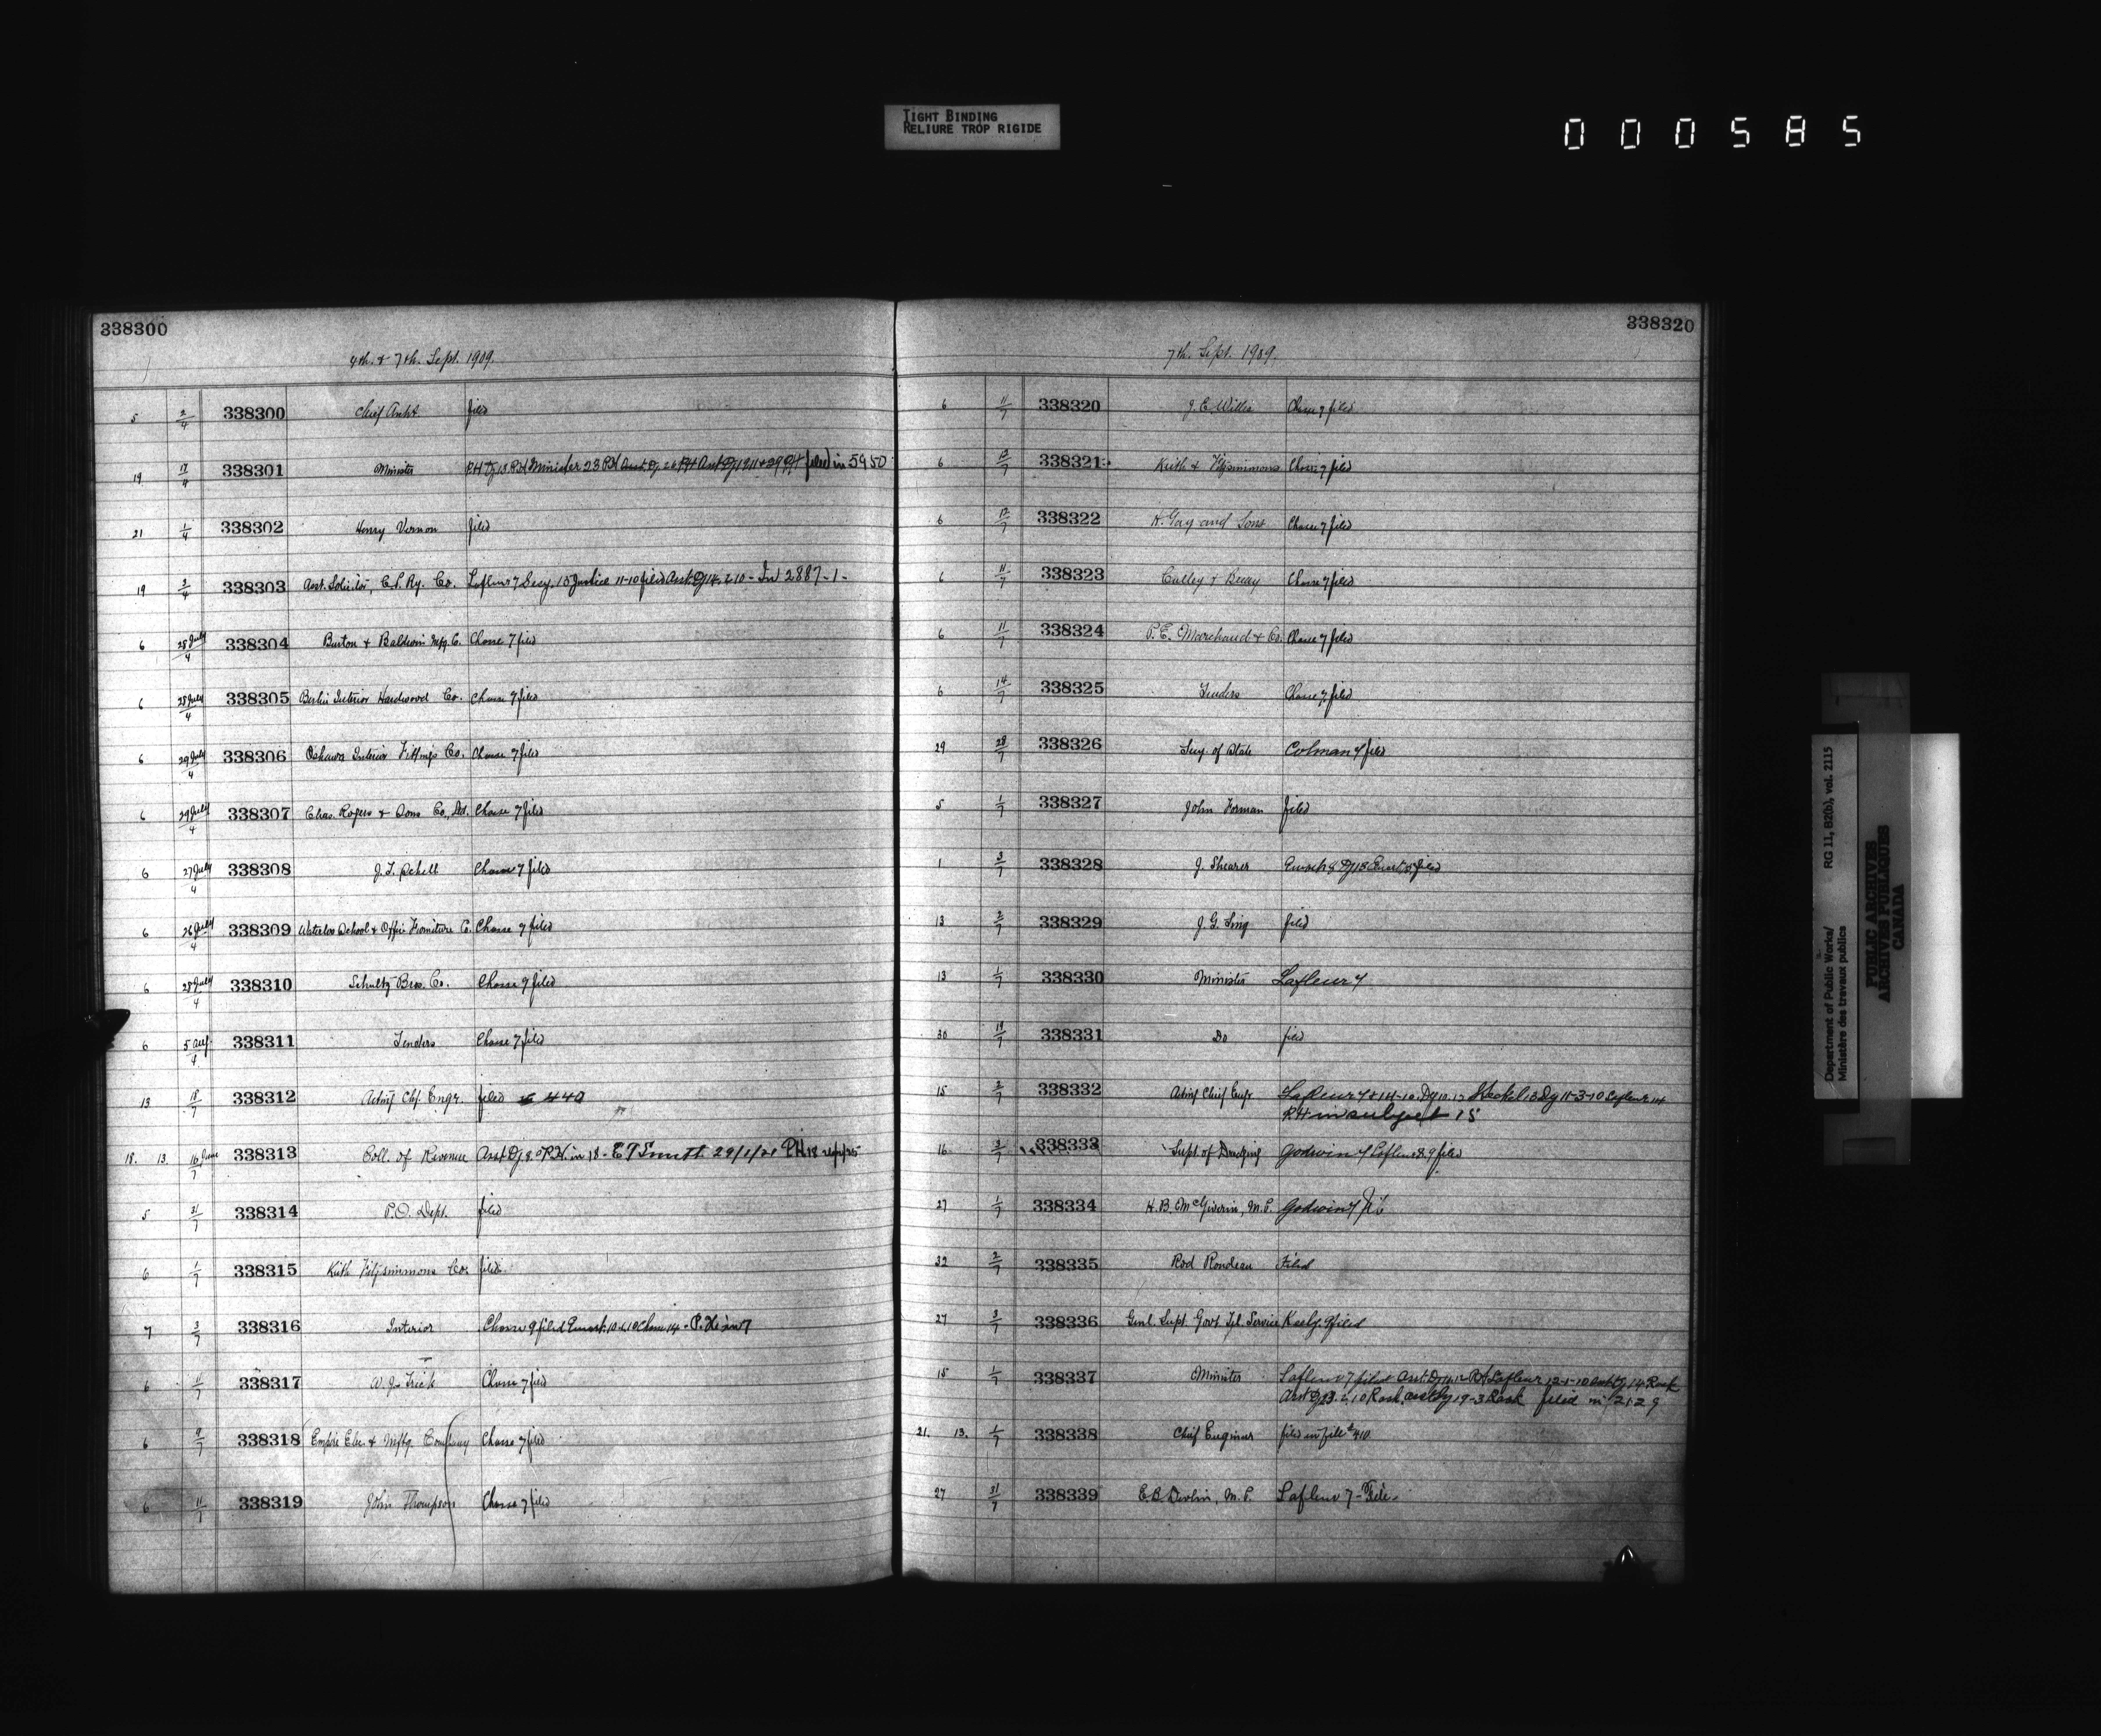 TIGHT BINDING
RELIURE TROP RIGIDE
000585
338300
4th. & 7th. Sept. 1909.
5 2/4 338300 Chief Archt filed
19 17/4 338301 Minister filed in 5950
21 1/4 338302 Henry Vernon filed
19 2/4 338303 Asst. Solicitor, C.P. Ry. Co. Lafleur 7 Secy. 10 Justice 11-10 filed Asst. Dy 14.2.10 - In 2887-1-
6 28 July/4 338304 Burton & Baldwin Mfg. Co. Chasse 7 filed
6 28 July/4 338305 Berlin Interior Hardwood Co. Chasse 7 filed
6 29 July/4 338306 Oshawa Interior Fittings Co. Chasse 7 filed
6 29 July/4 338307 Chas. Rogers & Sons Co., Ltd. Chasse 7 filed
6 27 July/4 338308 J. T. Schell Chasse 7 filed
6 26 July/4 338309 Waterloo School & Office Furniture Co. Chasse 7 filed
6 28 July/4 338310 Schultz Bros. Co. Chasse 7 filed
6 5 Aug./4 338311 Tenders Chasse 7 filed
13 18/7 338312 Acting Chf. Engr. filed 440
18. 13. 16 June/7 338313 Coll. of Revenue Asst Dy 8. P.H. in 18 -
5 31/7 338314 P.O. Dept. filed
6 1/7 338315 Keith Fitzsimmons Co. filed
7 3/7 338316 Interior Chasse 9 filed
6 11/7 338317 Chasse 7 filed
6 9/7 338318 Empire Elec. & Mftg. Company Chasse 7 filed
6 11/7 338319 John Thompson Chasse 7 filed
338320
7th. Sept. 1909.
6 11/7 338320 J. C. Willis Chasse 7 filed
6 13/7 338321 Keith & Fitzsimmons Chasse 7 filed
6 12/7 338322 H. Gay and Sons Chasse 7 filed
6 11/7 338323 Chasse 7 filed
6 11/7 338324 P. E. Marchand & Co. Chasse 7 filed
6 14/7 338325 Tenders Chasse 7 filed
29 28/7 338326 Secy. of State Colman 7 filed
5 1/7 338327 John Forman filed
1 3/7 338328 J. Shearer filed
13 2/7 338329 J. G. Sing filed
13 1/7 338330 Minister Lafleur 7
30 19/7 338331 Do filed
15 2/7 338332 Acting Chief Engr
P.H in subject 15
16 3/7 338333 Supt. of Dredging Godwin 7 Lafleur 8.9 filed
27 1/7 338334 H. B. McGiverin, M.P. Godwin 7
32 2/7 338335 Rod Rondeau Filed
27 3/7 338336 Genl. Supt. Govt. Tel. Service Keely. 9 filed
15 1/7 338337 Minister Lafleur 7 filed
filed in 2129
21. 13. 1/7 338338 Chief Engineer filed in file #410
27 31/7 338339 E. B. Devlin, M.P. Lafleur 7 - File.
Department of Public Works/
Ministère des travaux publics
RG 11, B2(b), vol. 2115
PUBLIC ARCHIVES
ARCHIVES PUBLIQUES
CANADA